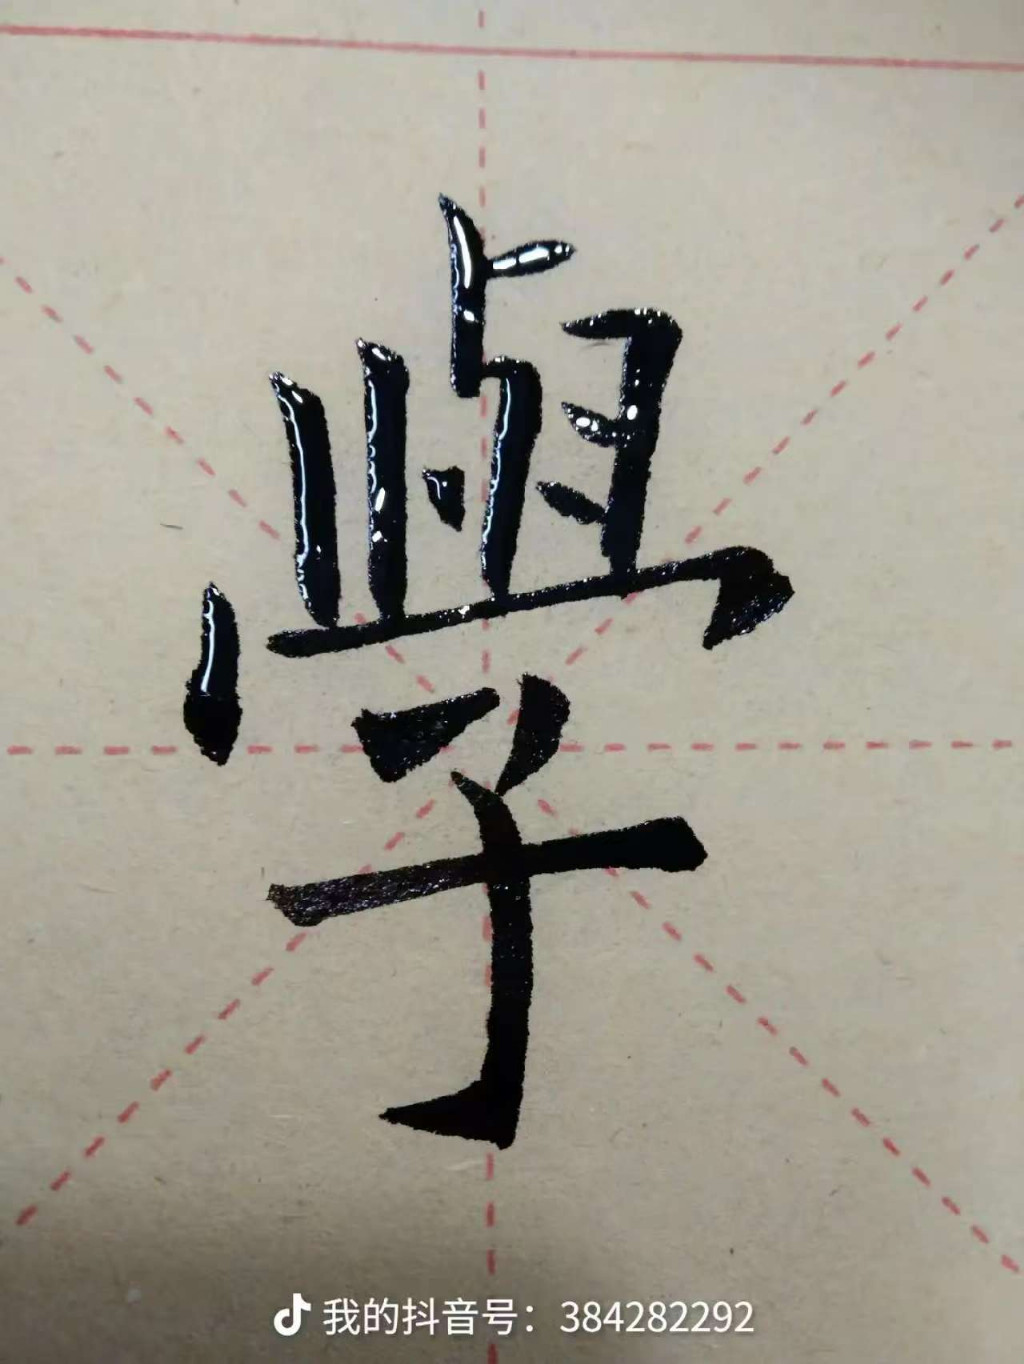 學
我的抖音号：384282292